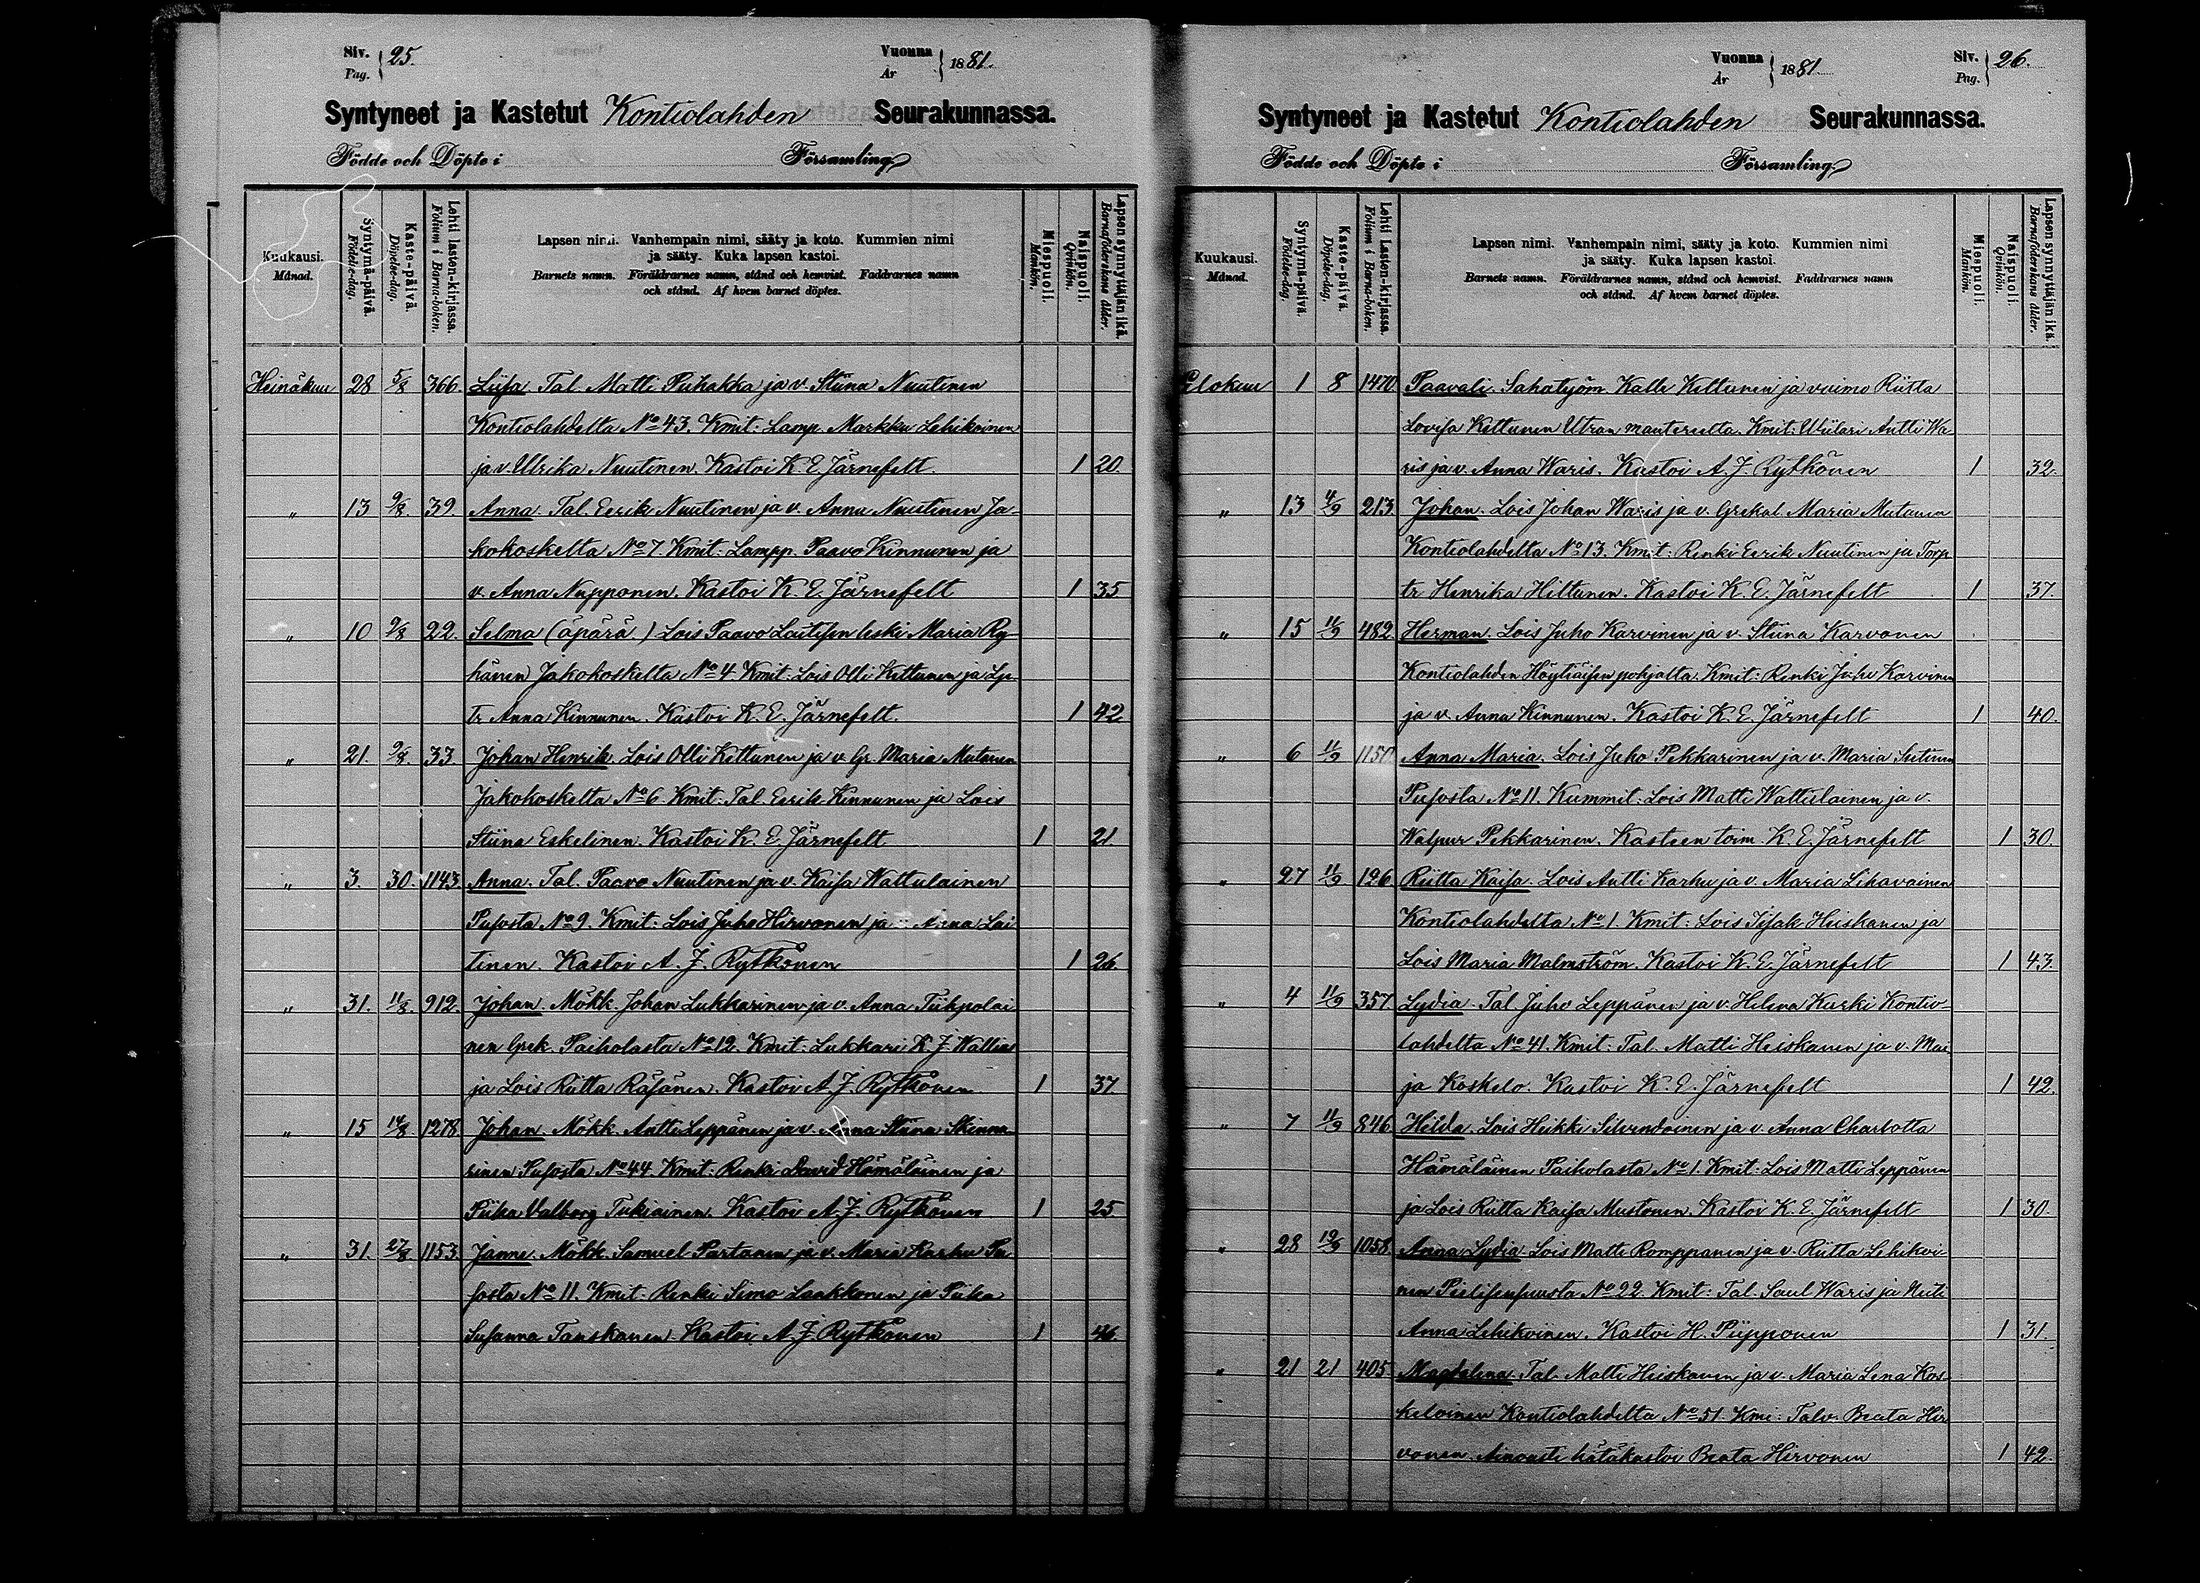 Siv. Pag. 25.
Vuonna År 1881.
Syntyneet ja Kastetut Kontiolahden Seurakunnassa.
Födde och Döpte i Församling
Kuukausi. Månad.
Syntymä-päivä. Födelse-dag.
Kaste-päivä. Döpelse-dag.
Lehti lasten-kirjassa. Folium i Barna-boken.
Lapsen nimi. Vanhempain nimi, sääty ja koto. Kummien nimi
ja sääty. Kuka lapsen kastoi.
Barnets namn. Föräldrarnes namn, stånd och hemvist. Faddrarnes namn
och stånd. Af hvem barnet döptes.
Miespuoli. Mankön.
Naispuoli. Qvinkön.
Lapsen synnyttäjän ikä. Barnaföderskans ålder.
Heinäkuu 28 5/8 366. Liisa Tal. Matti Puhakka ja v. Stiina Nuutinen
Kontiolahdelta No 43. Kmit: Lamp. Markku Lehikoinen
ja v. Ulrika Nuutinen. Kastoi K. E. Järnefelt. 1 20
" 13 9/8. 39. Anna Tal. Eerik Nuutinen ja v. Anna Nuutinen Ja-
kokoskelta No 7 Kmit: Lampp. Paavo Kinnunen ja
v. Anna Nupponen. Kastoi K. E. Järnefelt 1 35
" 10 9/8 22. Selma (äpärä) Lois Paavo Laitisen leski Maria Ry-
hänen Jakokoskelta No 4 Kmit: Lois Olli Kettunen ja Lp
tr Anna Kinnunen. Kastoi K. E. Järnefelt. 1 42
" 21. 9/8. 33 Johan Henrik. Lois Olli Kettunen ja v. Gr. Maria Mutanen
Jakokoskelta No 6 Kmit: Tal. Eerik Kinnunen ja Lois
Stiina Eskelinen. Kastoi K. E. Järnefelt 1 21
" 3. 30. 1143 Anna. Tal. Paavo Nuutinen ja v. Kaisa Wattulainen
Pusosta No 9. Kmit: Lois Juho Hirvonen ja Anna Lai
tinen. Kastoi A. J. Rytkönen 1 26
" 31. 11/8. 912. Johan. Mökk. Johan Lukkarinen ja v. Anna Tiihpolai
nen Grek. Paiholasta No 12. Kmit: Lukkari K. J. Wallius
ja Lois Riitta Räsänen. Kastoi A. J. Rytkönen 1 37.
" 15 14/8 1278 Johan. Mökk. Antti Leppänen ja v. Anna Stiina Skinna-
rinen Pusosta No 44 Kmit: Renki David Hämäläinen ja
Piika Valborg Tukiainen. Kastoi A. J. Rytkönen 1 25
" 31. 27/8 1153. Janne. Mökk. Samuel Partanen ja v. Maria Karhu Pu
sosta No 11. Kmit: Renki Simo Laakkonen ja Piika
Susanna Tanskanen Kastoi A. J. Rytkönen 1 46
Vuonna År 1881.
Siv. Pag. 26.
Syntyneet ja Kastetut Kontiolahden Seurakunnassa.
Födde och Döpte i Församling
Kuukausi. Månad.
Syntymä-päivä. Födelse-dag.
Kaste-päivä. Döpelse-dag.
Lehti Lasten-kirjassa. Folium i Barna-boken.
Lapsen nimi. Vanhempain nimi, sääty ja koto. Kummien nimi
ja sääty. Kuka lapsen kastoi.
Barnets namn. Föräldrarnes namn, stånd och hemvist. Faddrarnes namn
och stånd. Af hvem barnet döptes.
Miespuoli. Mankön.
Naispuoli. Qvinkön.
Lapsen synnyttäjän ikä. Barnaföderskans ålder.
Elokuu 1 8 1470 Paavali. Sahatyöm. Kalle Kettunen ja vaimo Riitta
Lovisa Kettunen Utran manterelta. Kmit: Wiilari Antti Wa
ris ja v. Anna Waris. Kastoi A. J. Rytkönen 1 32.
" 13 4/9 213 Johan. Lois Johan Waris ja v. Grekal. Maria Mutanen
Kontiolahdelta No 13. Kmit: Renki Eerik Nuutinen ja Torp
tr Henrika Hiltunen. Kastoi K. E. Järnefelt 1 37.
" 15 11/9 482 Herman. Lois Juho Karvinen ja v. Stiina Karvonen
Kontiolahden Höytiäisen pohjalta. Kmit: Renki Juho Karvinen
ja v. Anna Kinnunen. Kastoi K. E. Järnefelt 1 40.
" 6 11/9 1150 Anna Maria. Lois Juho Pekkarinen ja v. Maria Sutinen
Pusosta No 11. Kummit: Lois Matti Wattulainen ja v.
Walpur Pekkarinen. Kasteen toim. K. E. Järnefelt 1 30.
" 27 11/9 126 Riitta Kaisa. Lois Antti Karhu ja v. Maria Lihavainen
Kontiolahdelta No 1. Kmit: Lois Iisak Heiskanen ja
Lois Maria Malmström. Kastoi K. E. Järnefelt 1 43.
" 4 11/9 357 Lydia. Tal Juho Leppänen ja v. Helena Kurki Kontio-
lahdelta No 41. Kmit: Tal. Matti Heiskanen ja v. Mar
ja Koskelo. Kastoi K. E. Järnefelt 1 42.
" 7 11/9 846 Hilda. Lois Heikki Silvendoinen ja v. Anna Charlotta
Hämäläinen Paiholasta No 1. Kmit: Lois Matti Leppänen
ja Lois Riitta Kaisa Mustonen. Kastoi K. E. Järnefelt 1 30.
" 28 19/9 1058. Anna Lydia Lois Matti Romppanen ja v. Riitta Lehikoi
nen Pielisensuusta No 22 Kmit: Tal. Saul Waris ja Neiti
Anna Lehikoinen. Kastoi H. Piipponen 1 31.
" 21 21 405 Magdalena Tal. Matti Heiskanen ja v. Maria Lena Kos-
keloinen Kontiolahdelta No 51. Kmi: Talv. Beata Hir
vonen. Ainoasti hätäkastoi Beata Hirvonen 1 42.